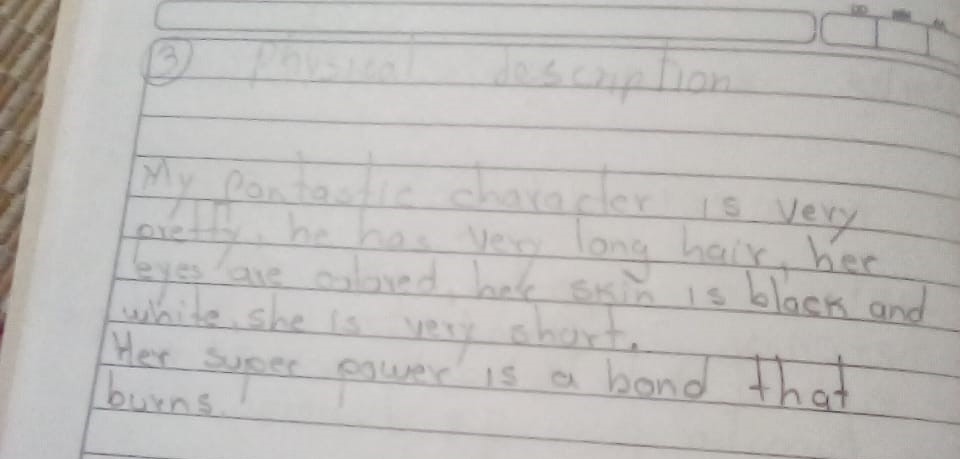 3 Physical description
My fantastic character is very
pretty, he has very long hair, her
eyes are colored, her skin is black and
white, she is very short.
Her super power is a bond that
burns.